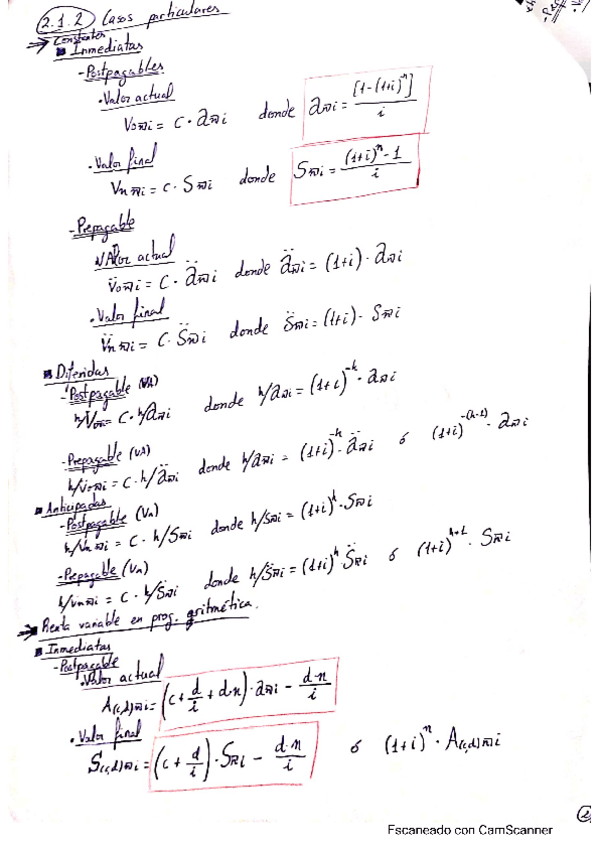 2.1.2) Casos particulares
→ Constantes
▪ Inmediatas
- Postpagables
• Valor actual
V₀n̅|i = C · an̅|i donde an̅|i = [1-(1+i)^n] / i
• Valor final
Vn n̅|i = C · Sn̅|i donde Sn̅|i = (1+i)^n - 1 / i
- Prepagable
• Valor actual
V̈₀n̅|i = C · än̅|i donde än̅|i = (1+i) · an̅|i
• Valor final
V̈n n̅|i = C · S̈n̅|i donde S̈n̅|i = (1+i) · Sn̅|i
▪ Diferidas
- Postpagable (VA)
h/V₀n̅| = C · h/an̅|i donde h/an̅|i = (1+i)^-h · an̅|i
- Prepagable (VA)
h/V̈₀n̅|i = C · h/än̅|i donde h/än̅|i = (1+i)^-h · än̅|i ó (1+i)^-(h-1) · an̅|i
▪ Anticipadas
- Postpagable (Vn)
h/Vn n̅|i = C · h/Sn̅|i donde h/Sn̅|i = (1+i)^h · Sn̅|i
- Prepagable (Vn)
h/V̈n n̅|i = C · h/S̈n̅|i donde h/S̈n̅|i = (1+i)^h · S̈n̅|i ó (1+i)^h+1 · Sn̅|i
→ Renta variable en prog. aritmética.
▪ Inmediatas
- Postpagable
• Valor actual
A(c,d)n̅|i = (c + d/i + d·n) · an̅|i - d·n/i
• Valor final
S(c,d)n̅|i = (c + d/i) · Sn̅|i - d·n/i ó (1+i)^n · A(c,d)n̅|i
2
Escaneado con CamScanner